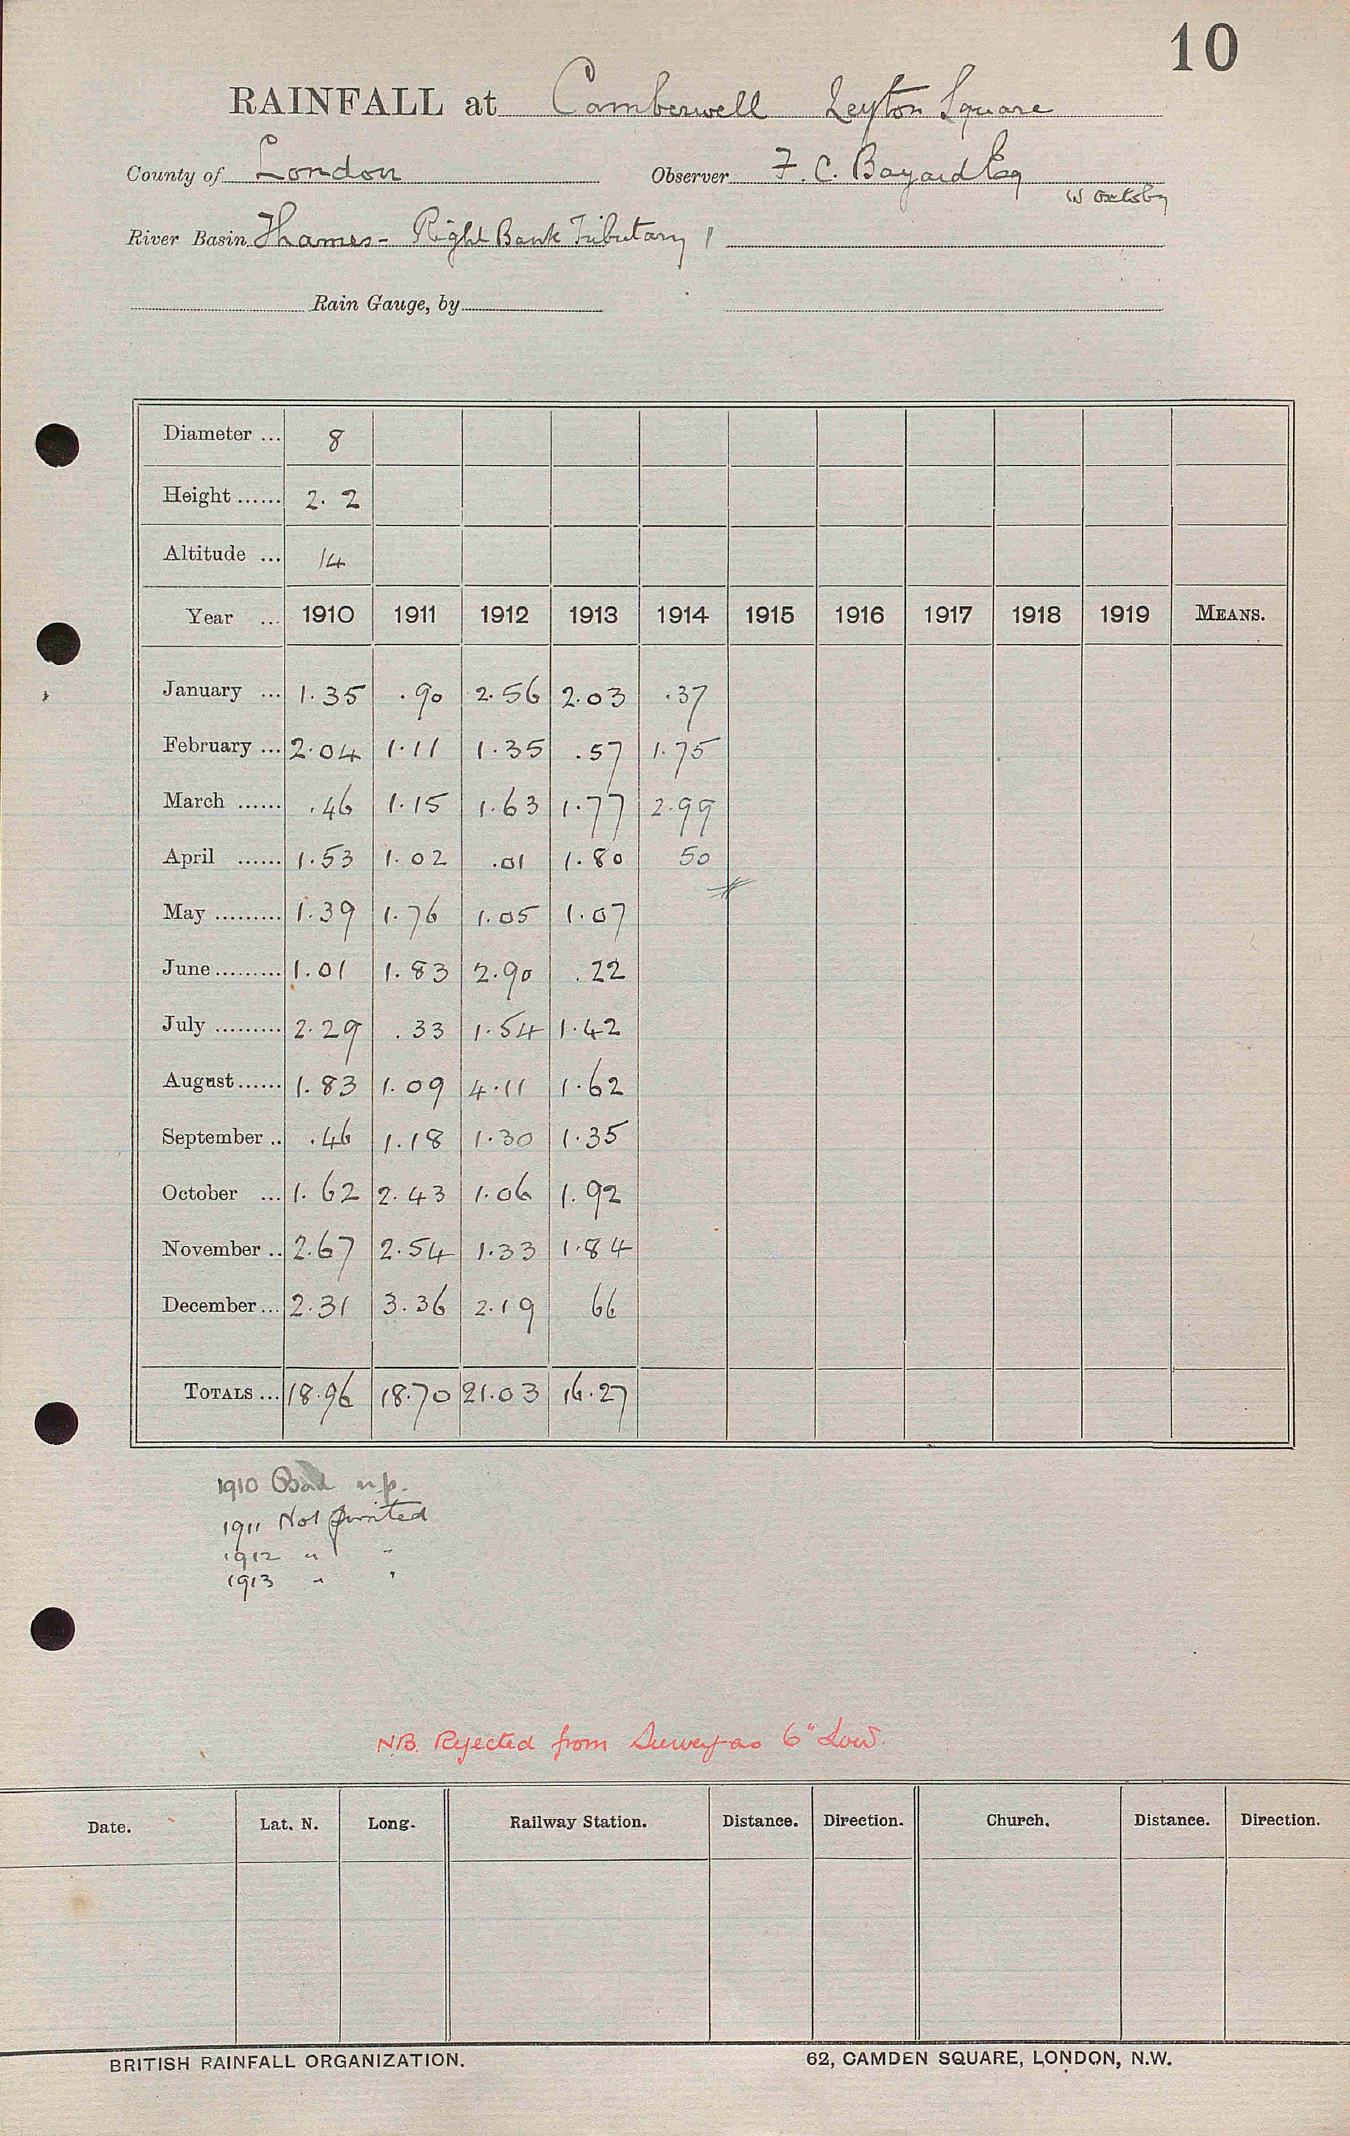 10
RAINFALL at Camberwell Leyton Square
County of London Observer F. C. Bayard Esq
River Basin Thames - Right Bank Tributary 1
Rain Gauge, by
Diameter ... 8
Height ...... 2.2
Altitude ... 14
Year ... 1910 1911 1912 1913 1914 1915 1916 1917 1918 1919 MEANS.
January ... 1.35 .90 2.56 2.03 .37
February ... 2.04 1.11 1.35 .57 1.75
March ...... .46 1.15 1.63 1.77 2.99
April ...... 1.53 1.02 .01 1.80 50
May ......... 1.39 1.76 1.05 1.07
June ......... 1.01 1.83 2.90 .22
July ......... 2.29 .33 1.54 1.42
August ...... 1.83 1.09 4.11 1.62
September .. .46 1.18 1.30 1.35
October ... 1.62 2.43 1.06 1.92
November .. 2.67 2.54 1.33 1.84
December ... 2.31 3.36 2.19 66
TOTALS ... 18.96 18.70 21.03 16.27
1910 Bad n.p.
1911 Not printed
1912 " "
1913 " "
N.B. Rejected from Survey as 6" Low.
Date. Lat. N. Long. Railway Station. Distance. Direction. Church. Distance. Direction.
BRITISH RAINFALL ORGANIZATION. 62, CAMDEN SQUARE, LONDON, N.W.